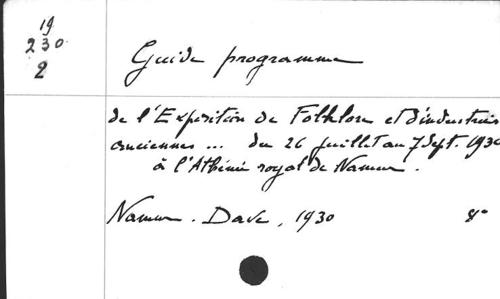 19
230
2
Guide programme
de l'Exposition de Folklore et d'industries
anciennes ... du 26 juillet au 7 Sept. 1930
à l'Athénée royal de Namur.
Namur. Dave, 1930 8°